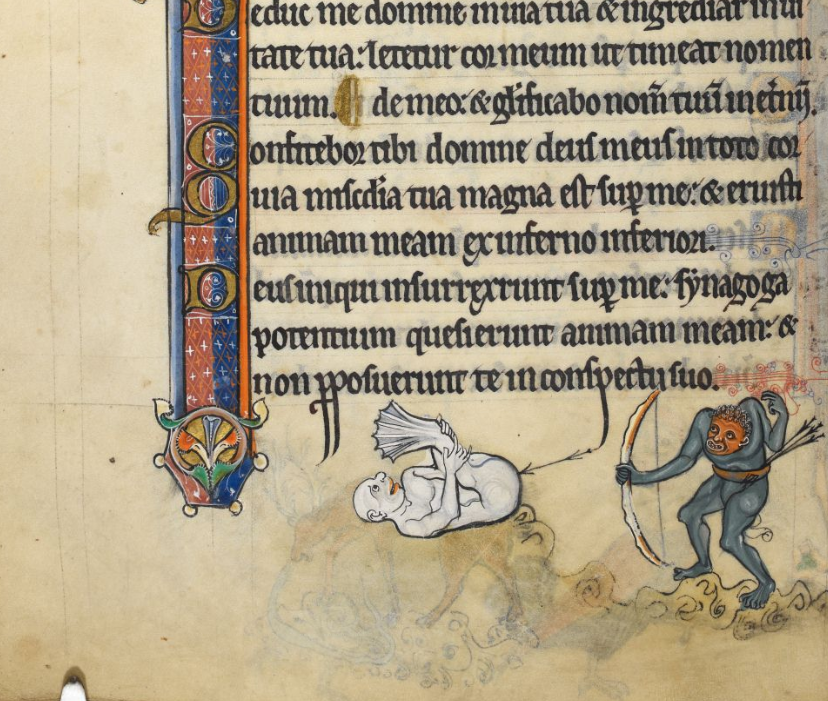 Deduc me domine in uia tua & ingrediar in ui
tate tua: letetur cor meum ut timeat nomen
tuum. de meo: & glificabo nom̄ tuū in et̄nū.
Confitebor tibi domine deus meus in toto cor
Quia miscdia tua magna est sup me: & eruisti
animam meam ex inferno inferiori.
Deus iniqui insurrexerunt sup me: synagoga
potentium quesierunt animam meam: &
non pposuerunt te in conspectu suo.